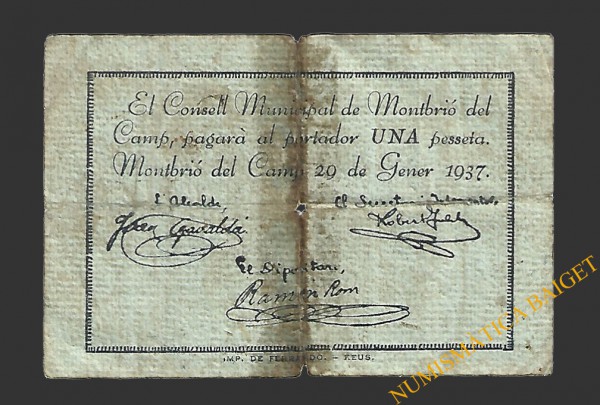 El Consell Municipal de Montbrió del
Camp, pagarà al portador UNA pesseta.
Montbrió del Camp 29 de Gener 1937.
L'Alcalde, El Secretari
Joan Gavaldà Robert
El Dipositari,
Ramón Rom
IMP. DE FERRANDO. - REUS.
NUMISMATICA BAIGET